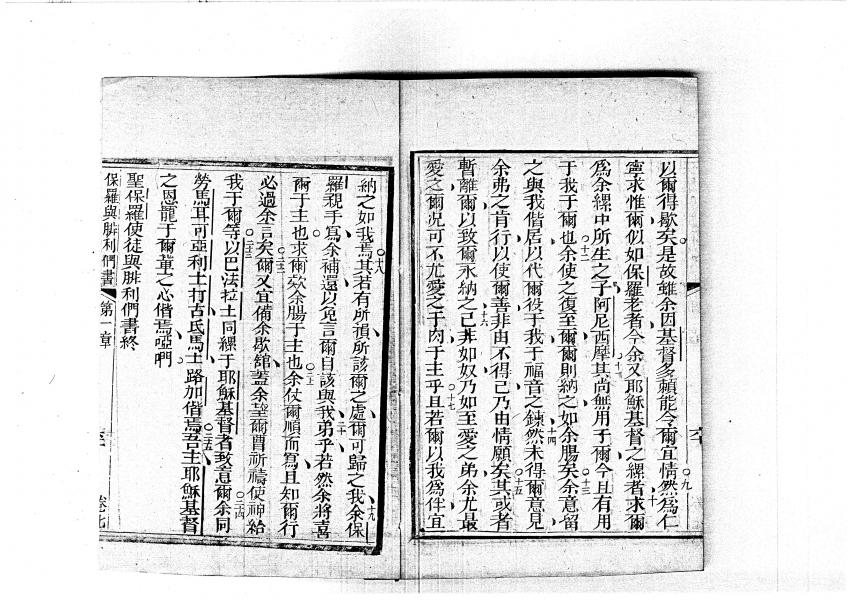 以爾得歇矣是故雖余因基督多賴能令爾宜情然為仁
寧求惟爾似如保羅老者今余又耶穌基督之縲者求爾
為余縲中所生之子阿尼西摩其尚無用于爾今且有用
于我于爾也余使之復至爾爾則納之如余腸矣余意留
之與我偕居以代爾役于我于福音之鍊然未得爾意見
余弗之肯行以使爾善非由不得已乃由情願矣其或者
暫離爾以致爾永納之已非如奴乃如至愛之弟余尤最
愛之爾況可不尤愛之于肉于主乎且若爾以我為伴宜
納之如我焉其若有所損所該爾之處爾可歸之我余保
羅親手寫余補還以免言爾自該與我弟乎若然余將喜
爾于主也求爾欸余腸于主也余仗爾順而寫且知爾行
必過余言矣爾又宜備余歇舘蓋余望爾曹祈禱使神給
我于爾等以巴法拉士同縲于耶穌基督者致意爾余同
勞馬耳可亞利士打古氏馬士路加偕焉吾主耶穌基督
之恩寵于爾輩之心偕焉啞門
聖保羅使徒與腓利們書終
保羅與腓利們書 第一章